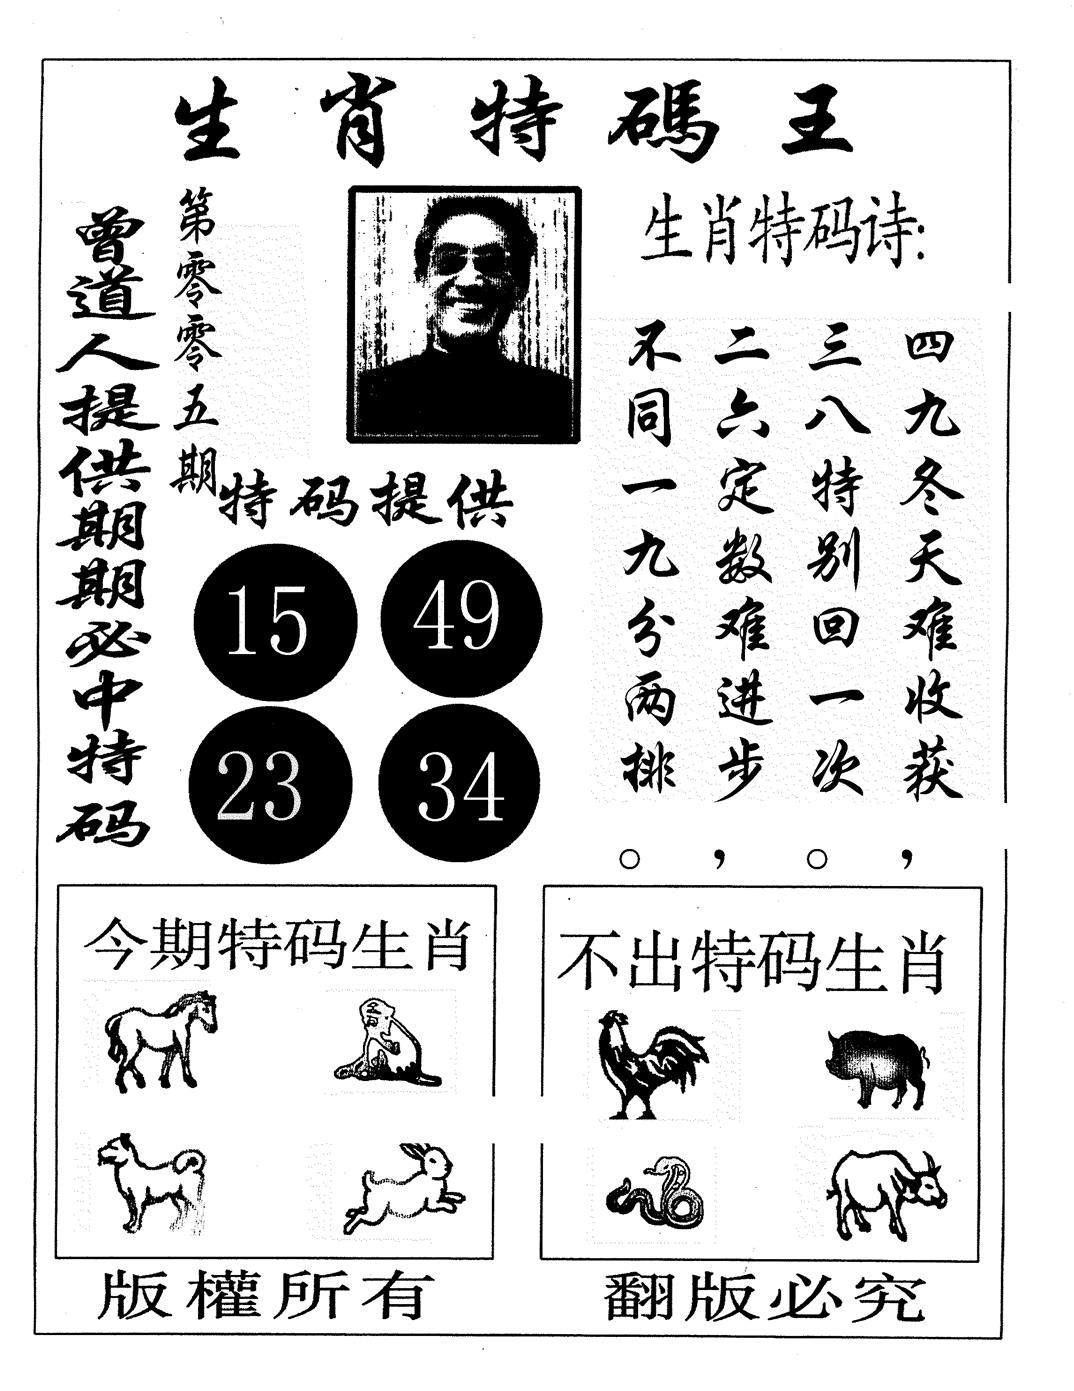 生肖特碼王
曾道人提供期期必中特码
第零零五期
生肖特码诗:
四九冬天难收获,
三八特别回一次。
二六定数难进步,
不同一九分两排。
特码提供
15 49
23 34
今期特码生肖
不出特码生肖
版權所有
翻版必究